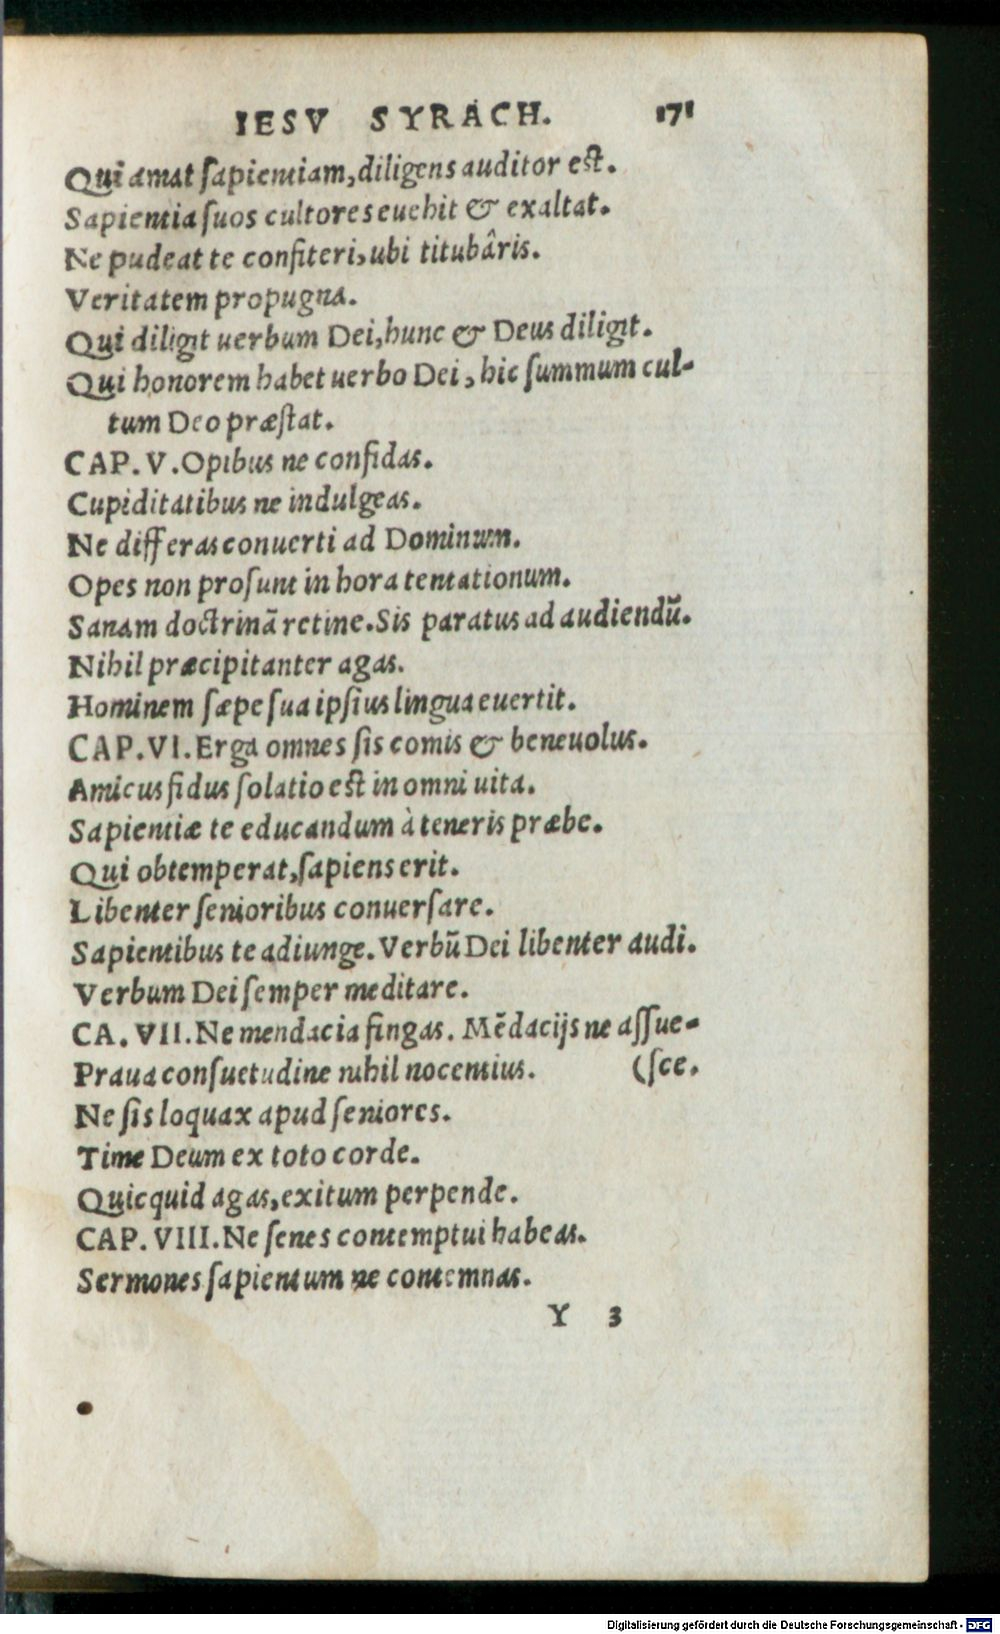 IESV SYRACH. 171
Qui amat ſapientiam, diligens auditor eſt.
Sapientia ſuos cultores euehit & exaltat.
Ne pudeat te confiteri, ubi titubâris.
Veritatem propugna.
Qui diligit uerbum Dei, hunc & Deus diligit.
Qui honorem habet uerbo Dei, hic ſummum cul-
tum Deo præſtat.
CAP. V. Opibus ne confidas.
Cupiditatibus ne indulgeas.
Ne differas conuerti ad Dominum.
Opes non proſunt in hora tentationum.
Sanam doctrinã retine. Sis paratus ad audiendũ.
Nihil præcipitanter agas.
Hominem ſæpe ſua ipſius lingua euertit.
CAP. VI. Erga omnes ſis comis & beneuolus.
Amicus fidus ſolatio eſt in omni uita.
Sapientiæ te educandum à teneris præbe.
Qui obtemperat, ſapiens erit.
Libenter ſenioribus conuerſare.
Sapientibus te adiunge. Verbũ Dei libenter audi.
Verbum Dei ſemper meditare.
CA. VII. Ne mendacia fingas. Mẽdacijs ne aſſue-
Praua conſuetudine nihil nocentius. (ſce.
Ne ſis loquax apud ſeniores.
Time Deum ex toto corde.
Quicquid agas, exitum perpende.
CAP. VIII. Ne ſenes contemptui habeas.
Sermones ſapientum ne contemnas.
Y 3
Digitalisierung gefördert durch die Deutsche Forschungsgemeinschaft - DFG